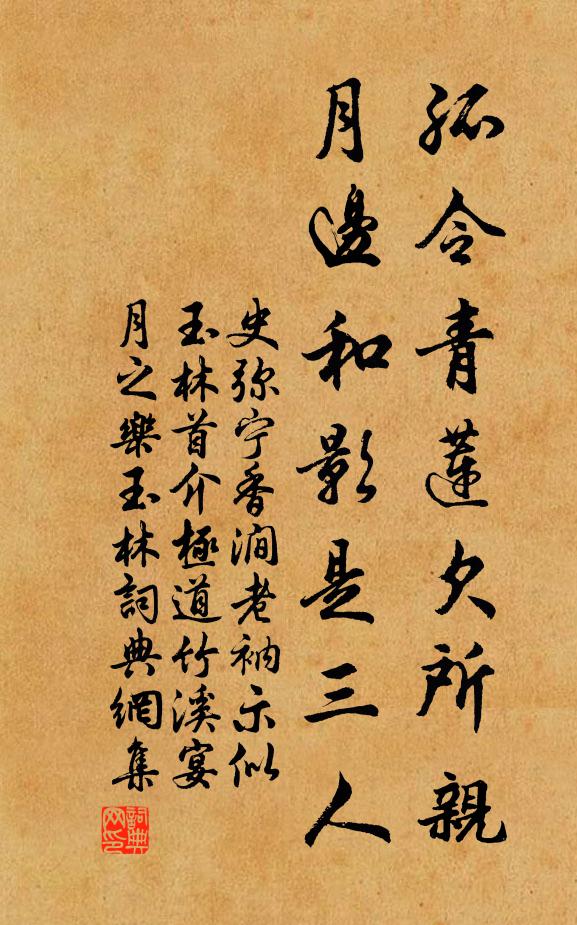 孤令青蓮欠所親
月邊和影是三人
史弥宁香澗老衲示似
玉林首介極道竹溪宴
月之樂玉林詞典網集
詞典網印